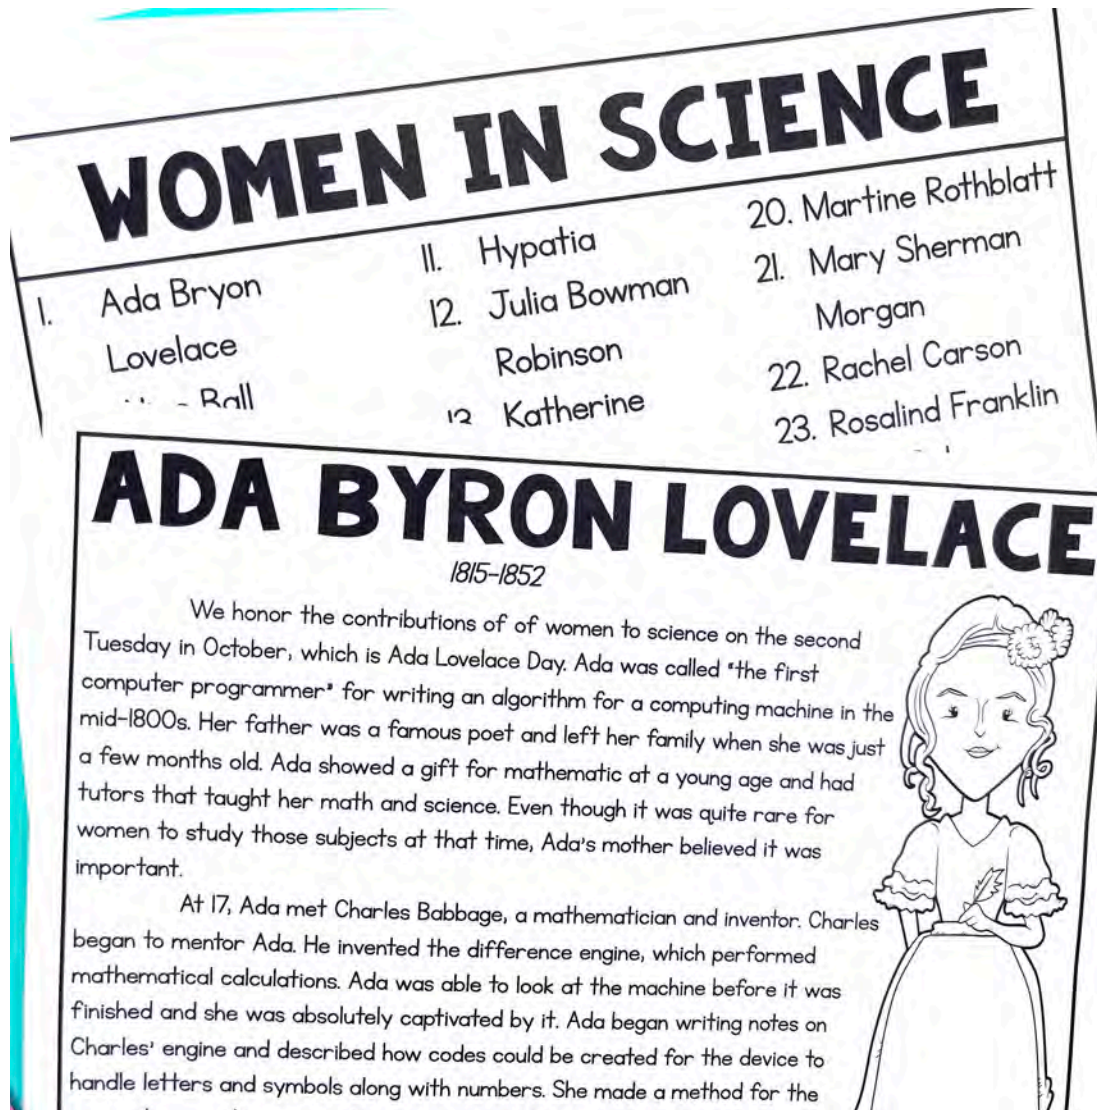 WOMEN IN SCIENCE
1. Ada Bryon
Lovelace
Ball
11. Hypatia
12. Julia Bowman
Robinson
13 Katherine
20. Martine Rothblatt
21. Mary Sherman
Morgan
22. Rachel Carson
23. Rosalind Franklin
ADA BYRON LOVELACE
1815-1852
We honor the contributions of of women to science on the second
Tuesday in October, which is Ada Lovelace Day. Ada was called "the first
computer programmer" for writing an algorithm for a computing machine in the
mid-1800s. Her father was a famous poet and left her family when she was just
a few months old. Ada showed a gift for mathematic at a young age and had
tutors that taught her math and science. Even though it was quite rare for
women to study those subjects at that time, Ada's mother believed it was
important.
At 17, Ada met Charles Babbage, a mathematician and inventor. Charles
began to mentor Ada. He invented the difference engine, which performed
mathematical calculations. Ada was able to look at the machine before it was
finished and she was absolutely captivated by it. Ada began writing notes on
Charles' engine and described how codes could be created for the device to
handle letters and symbols along with numbers. She made a method for the